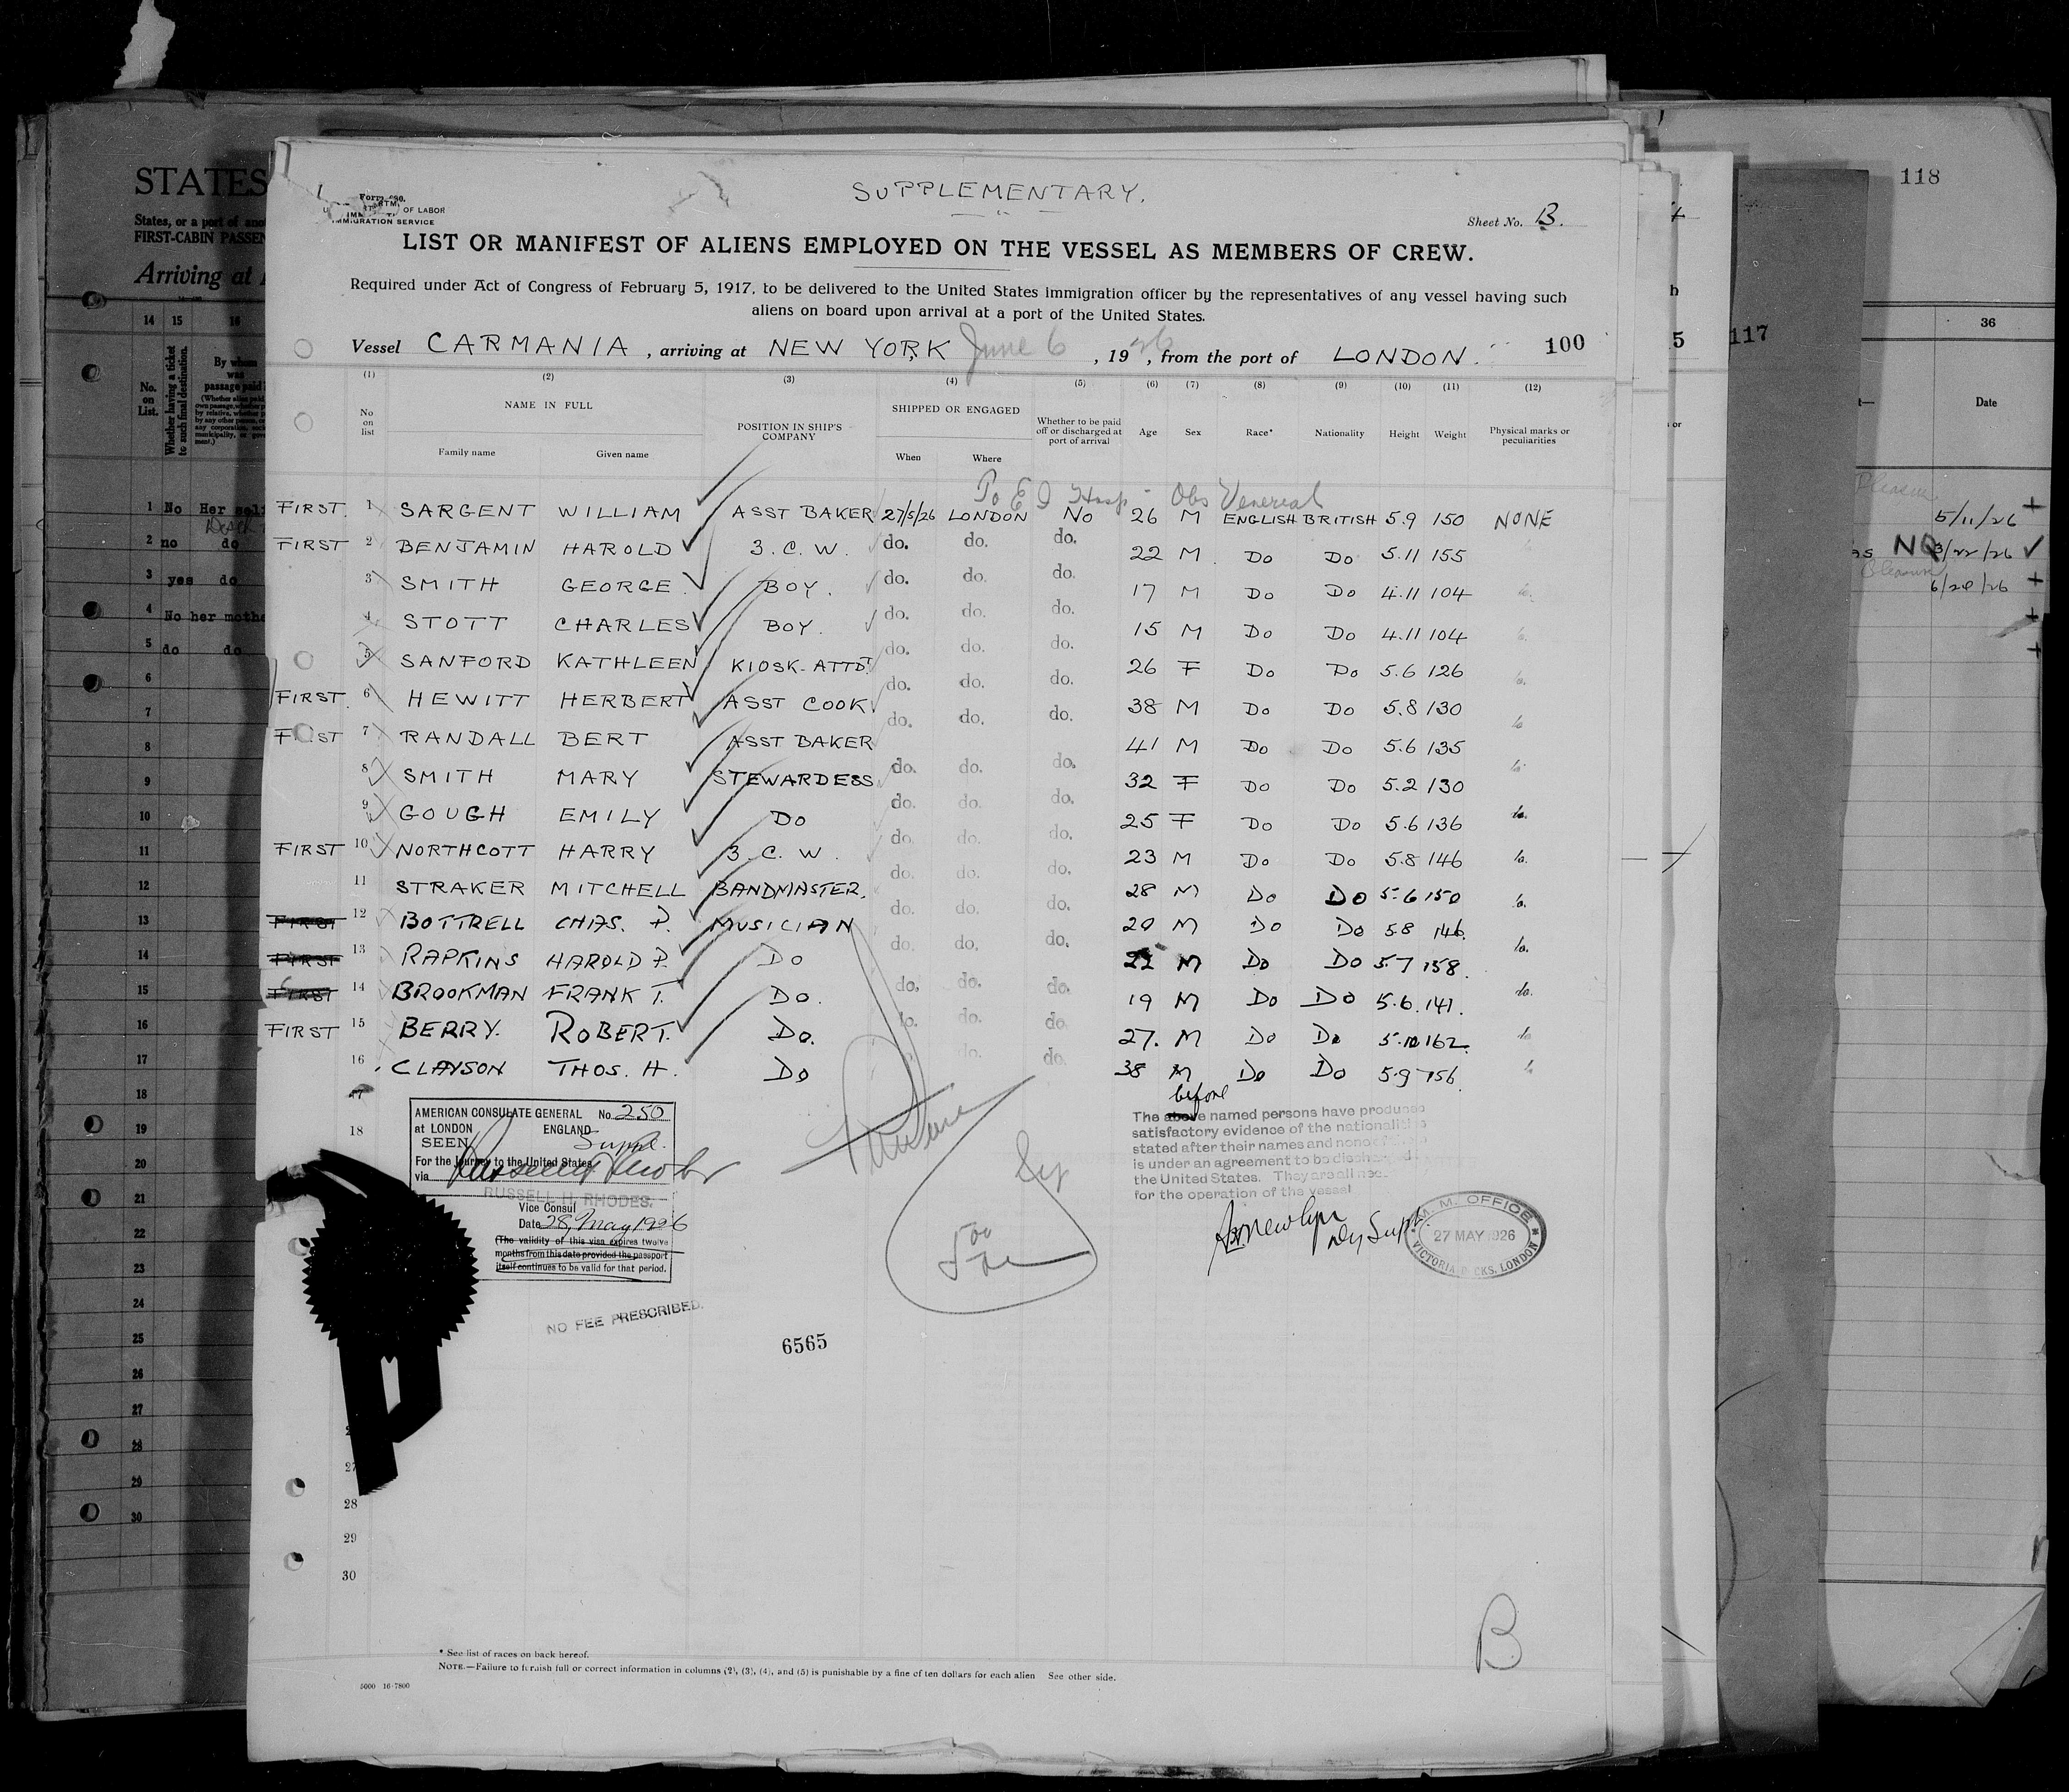 SUPPLEMENTARY.
OF LABOR
IMMIGRATION SERVICE
Sheet No. B.
LIST OR MANIFEST OF ALIENS EMPLOYED ON THE VESSEL AS MEMBERS OF CREW.
Required under Act of Congress of February 5, 1917, to be delivered to the United States immigration officer by the representatives of any vessel having such
aliens on board upon arrival at a port of the United States.
Vessel CARMANIA, arriving at NEW YORK June 6, 1926, from the port of LONDON. 100
(1) (2) (3) (4) (5) (6) (7) (8) (9) (10) (11) (12)
No on list
NAME IN FULL
Family name Given name
POSITION IN SHIP'S COMPANY
SHIPPED OR ENGAGED
When Where
Whether to be paid off or discharged at port of arrival
Age Sex Race* Nationality Height Weight
Physical marks or peculiarities
To E I Hosp - Obs Venereal
FIRST. 1 SARGENT WILLIAM ASST BAKER 27/5/26 LONDON No 26 M ENGLISH BRITISH 5.9 150 NONE
FIRST 2 BENJAMIN HAROLD 3. C. W. do. do. do. 22 M. Do Do 5.11 155
3 SMITH GEORGE. BOY. do. do. do. 17 M Do Do 4.11 104
4 STOTT CHARLES BOY. do. do. do. 15 M Do Do 4.11 104
5 SANFORD KATHLEEN KIOSK-ATTDT do. do. do. 26 F Do Do 5.6 126
FIRST. 6 HEWITT HERBERT ASST COOK do. do. do. 38 M Do Do 5.8 130
FIRST 7 RANDALL BERT ASST BAKER do. do. do. 41 M Do Do 5.6 135
8 SMITH MARY STEWARDESS do. do. do. 32 F Do Do 5.2 130
9 GOUGH EMILY Do do. do. do. 25 F Do Do 5.6 136
FIRST 10 NORTHCOTT HARRY 3. C. W. do. do. do. 23 M Do Do 5.8 146
11 STRAKER MITCHELL BANDMASTER. do. do. do. 28 M Do Do 5.6 150
FIRST 12 BOTTRELL CHAS. P. MUSICIAN do. do. do. 20 M Do Do 5.8 146.
FIRST 13 RAPKINS HAROLD P. Do do. do. do. 22 M Do Do 5.7 158.
FIRST 14 BROOKMAN FRANK T. Do. do. do. do. 19 M Do Do 5.6. 141.
FIRST 15 BERRY. ROBERT. Do. do. do. do. 27. M Do Do 5.10 162.
16 CLAYSON THOS. H. Do do. do. 38 M Do Do 5.9 156.
18
28
29
30
AMERICAN CONSULATE GENERAL No. 250
at LONDON ENGLAND
SEEN Suppl.
For the Journey to the United States
via
RUSSELL H. RHODES.
Vice Consul
Date 28 May 1926
(The validity of this visa expires twelve
months from this date provided the passport
itself continues to be valid for that period.
NO FEE PRESCRIBED.
6565
before
The above named persons have produced
satisfactory evidence of the nationalities
stated after their names and none of
is under an agreement to be discharged
the United States. They are all nec
for the operation of the vessel
M. M. OFFICE
27 MAY 1926
VICTORIA DOCKS, LONDON
B
* See list of races on back hereof.
NOTE.—Failure to furnish full or correct information in columns (2), (3), (4), and (5) is punishable by a fine of ten dollars for each alien See other side.
5000 16-7800
STATES
States, or a port of
FIRST-CABIN
Arriving at
14 15 16
No. on List.
Whether having a ticket to such final destination.
By whom was passage paid
1 No Her
2 no do
3 yes do
4 No her
5 do do
6
7
8
9
10
11
12
13
14
15
16
17
18
19
20
21
22
23
24
25
26
27
28
29
30
117
118
36
Date
5/11/26
NO 3/22/26
Pleasure